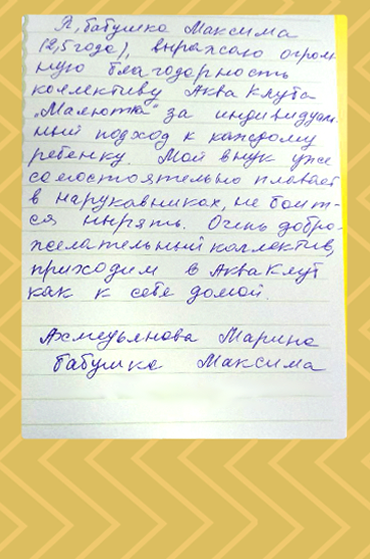 Я, бабушка Максима
(2,5 года), выражаю огром-
ную благодарность
коллективу Аква Клуба
„Малютка" за индивидуаль-
ный подход к каждому
ребенку. Мой внук уже
самостоятельно плавает
в нарукавниках, не боит-
ся нырять. Очень добро-
желательный коллектив,
приходим в Аква Клуб
как к себе домой.
Ахмедьянова Марина
бабушка Максима